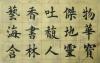 藝海含
香書林
吐馥人
傑地靈
物華寶